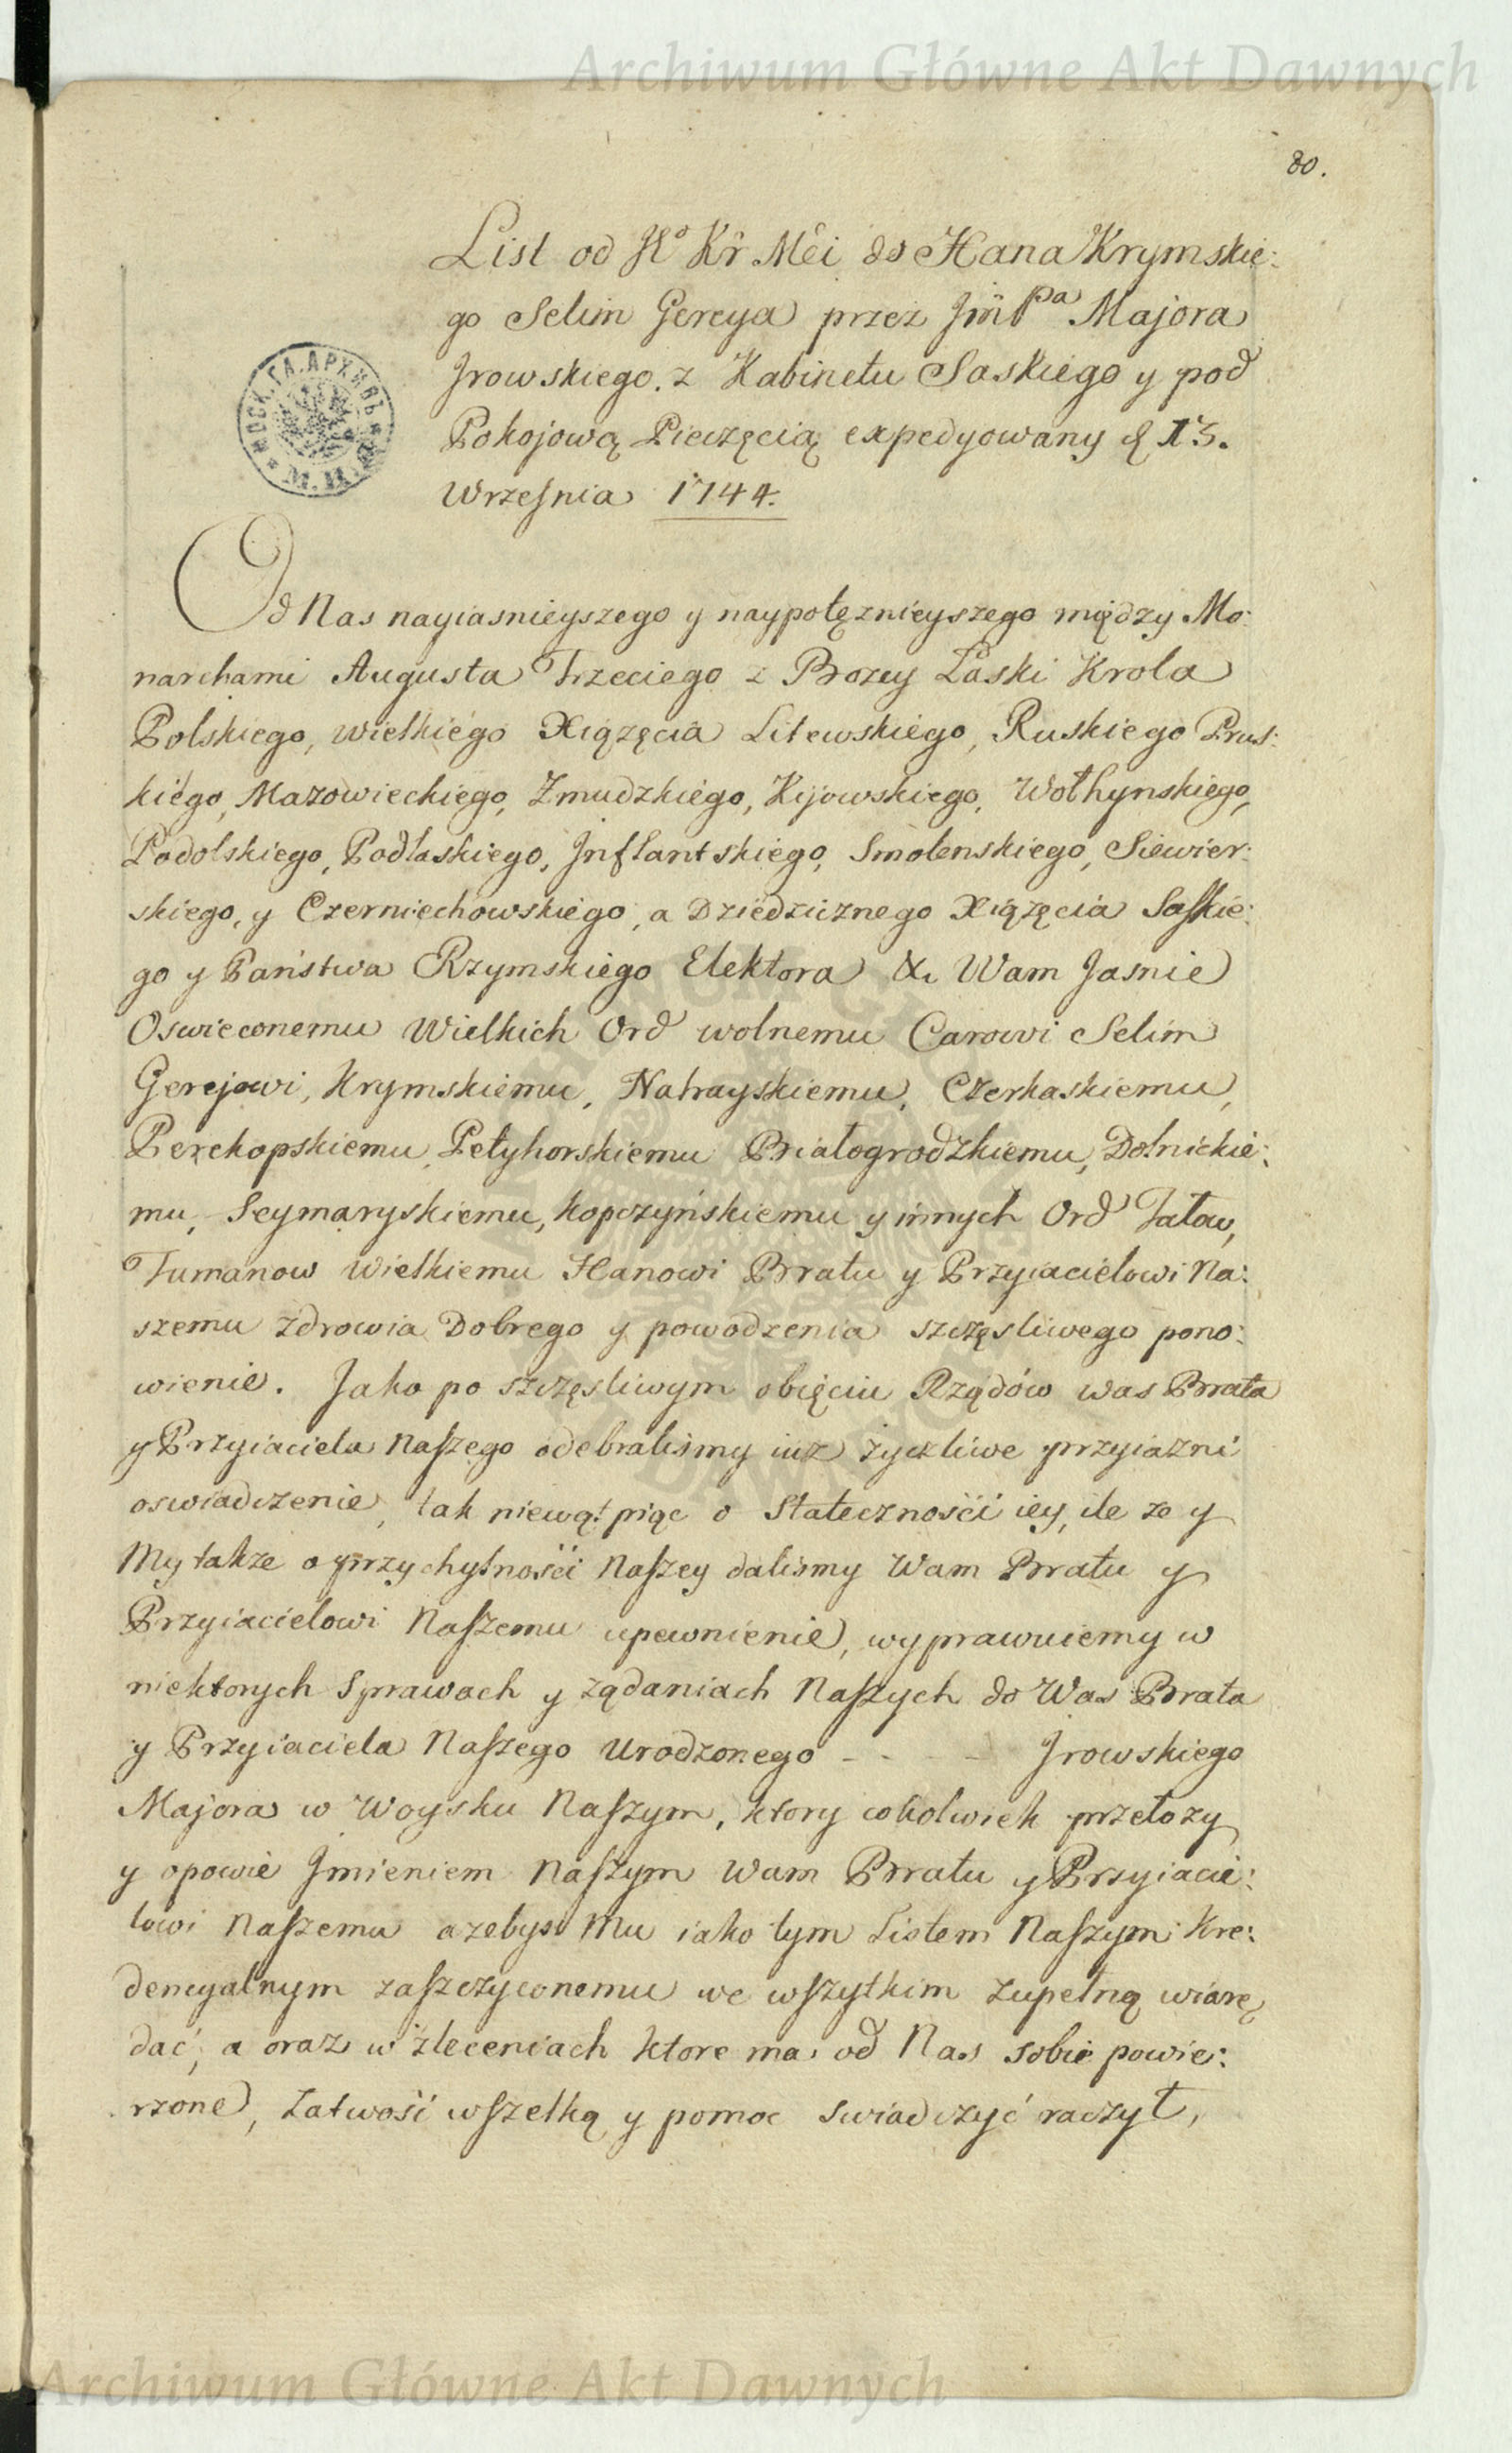 Archiwum Główne Akt Dawnych
80.
List od Jº Kr Mci do Hana Krymskie:
go Selim Gereya przez Jm Pa Majora
Jrowskiego. z Kabinetu Saskiego y pod
Pokojową Pieczęcią expedyowany d 13.
Wrzesnia 1744.
МОСК. ГЛ. АРХИВЪ
М. И. Д.
Od Nas nayiasnieyszego y naypotęznieyszego między Mo:
narchami Augusta Trzeciego z Bozey Łaski Krola
Polskiego, wielkiego Xiązęcia Litewskiego, Ruskiego Prus:
kiego, Mazowieckiego, Zmudzkiego, Kijowskiego, Wołhynskiego,
Podolskiego, Podlaskiego, Jnflantskiego, Smolenskiego, Siewier:
skiego, y Czerniechowskiego, a Dziedzicznego Xiązęcia Saskie:
go y Państwa Rzymskiego Elektora &. Wam Jasnie
Oswieconemu Wielkich Ord wolnemu Carowi Selim
Gerejowi, Krymskiemu, Nahayskiemu, Czerkaskiemu,
Perekopskiemu, Petyhorskiemu Białogrodzkiemu, Dolnickie:
mu, Seymaryskiemu, Kopczyńskiemu y innych Ord Tatow,
Tumanow wielkiemu Hanowi Bratu y Przyiacielowi Na:
szemu zdrowia Dobrego y powodzenia szczęsliwego pono:
wienie. Jako po szczęsliwym obięciu Rządów was Brata
y Przyiaciela Naszego odebralismy iuz zyczliwe przyiazni
oswiadczenie, tak niewątpiąc o Statecznośći iey, ile ze y
My takze o przychylnośći Naszey dalismy Wam Bratu y
Przyiacielowi Naszemu upewnienie, wyprawuiemy w
niektorych Sprawach y ządaniach Naszych do Was Brata
y Przyiaciela Naszego Urodzonego - - - - Jrowskiego
Majora w Woysku Naszym, ktory cokolwiek przełozy
y opowie Jmieniem Naszym Wam Bratu y Przyiacie:
lowi Naszemu azebys Mu iako tym Listem Naszym Kre:
dencyalnym zaszczyconemu we wszytkim zupełną wiarę
dać, a oraz w zleceniach ktore ma od Nas sobie powie:
rzone, Łatwość wszelką y pomoc swiadczyć raczył,
Archiwum Główne Akt Dawnych